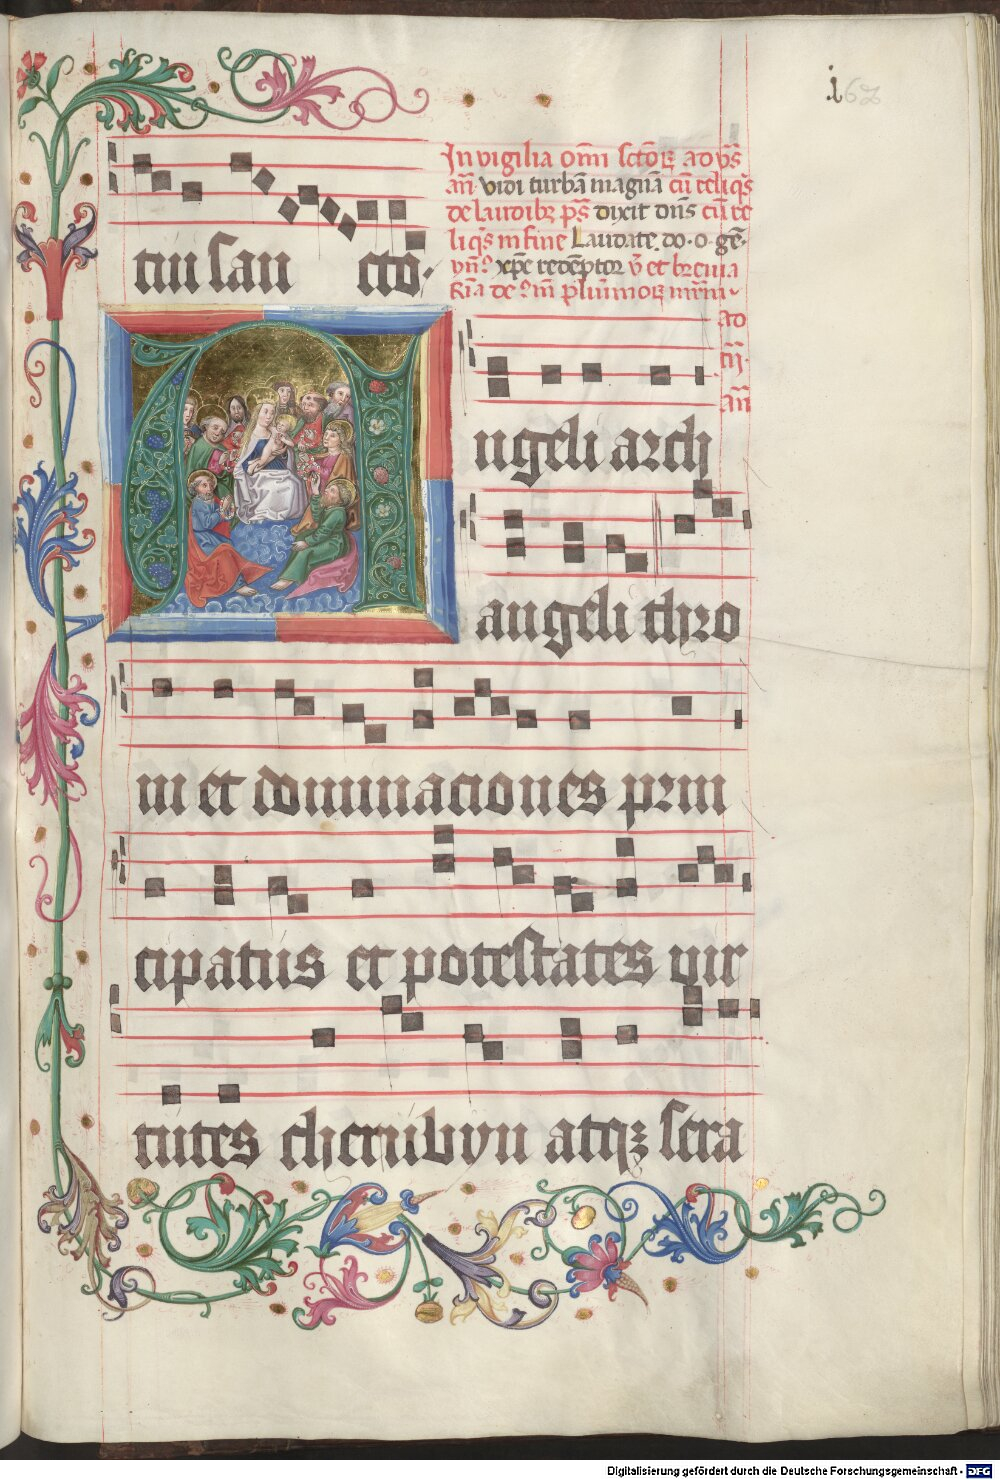 i 62
In vigilia om̄i sctōꝝ ad vs̄
an̄ vidi turbā magnā cū reliqs̄
de laudibꝫ ps̄ dixit dn̄s cū re
liqs̄ in fine Laudate do. o. gē.
yn̄? xp̄e redēptor v̄ et breuia
tui san ctō.
ad
m̄.
an̄
ngeli arch
angeli thro
ni et dominaciones prin
cipatus et potestates vir
tutes cherubyn atqꝫ sera
Digitalisierung gefördert durch die Deutsche Forschungsgemeinschaft - DFG